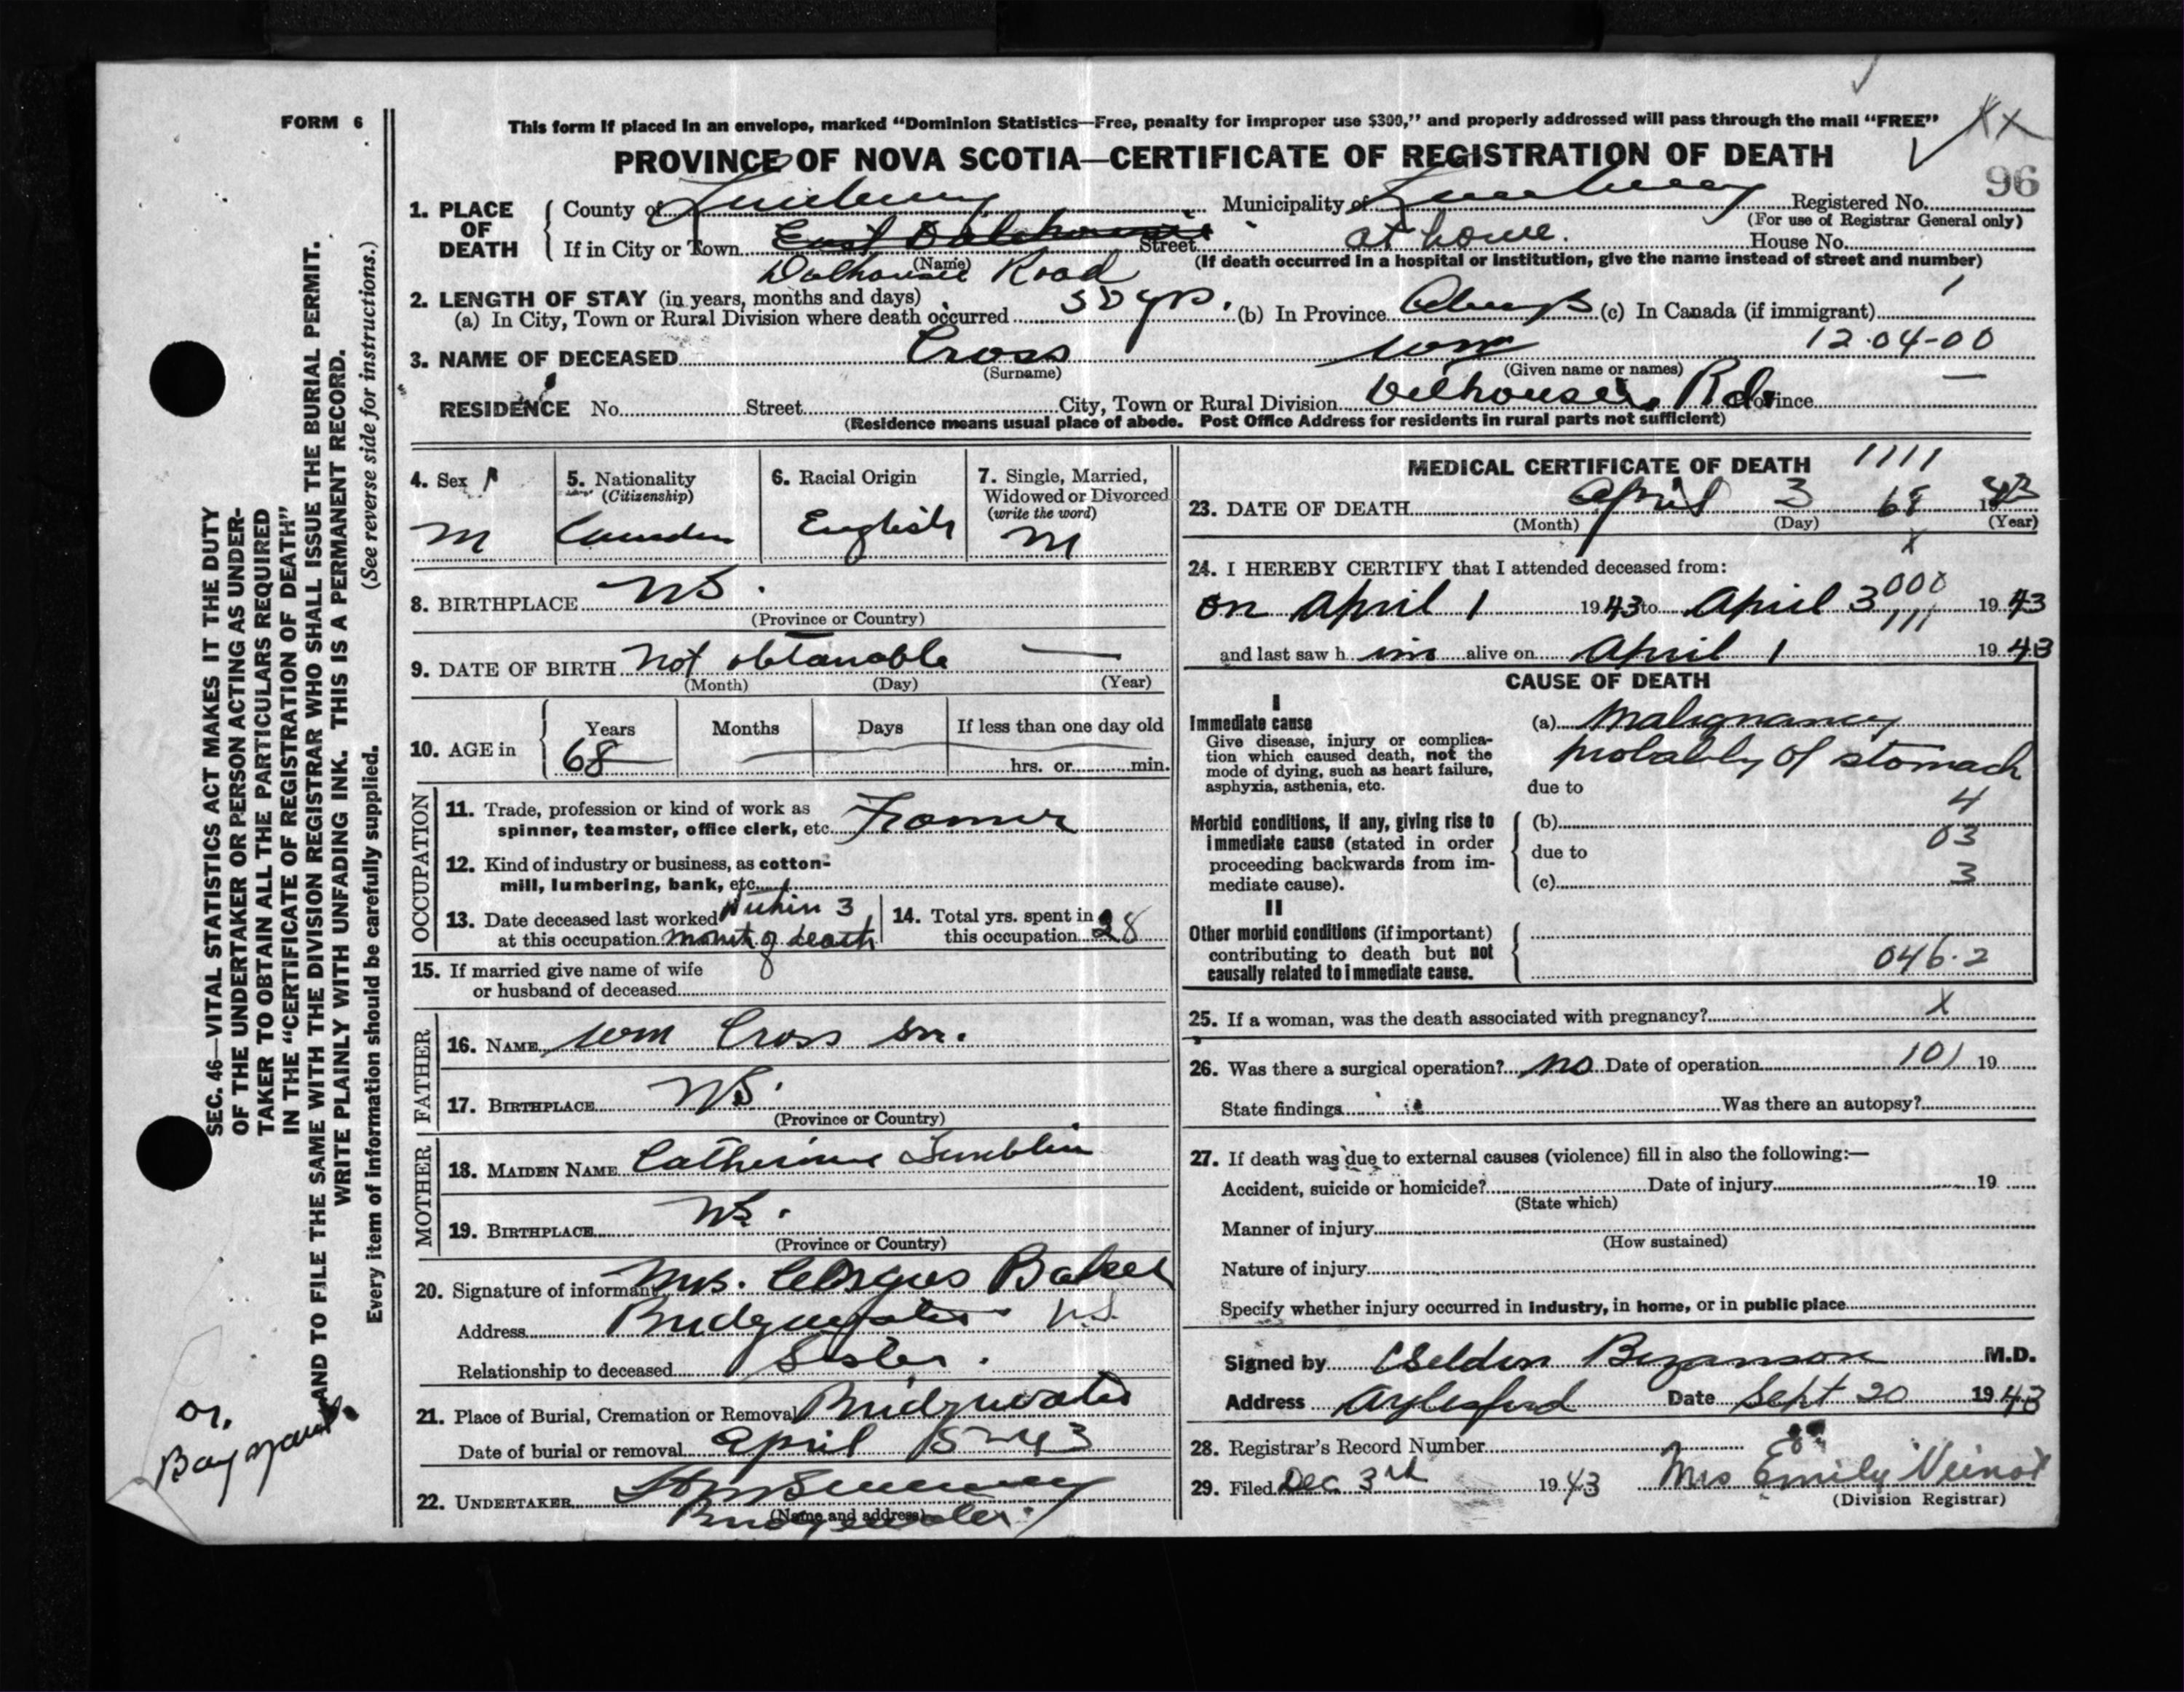 FORM 6
This form if placed in an envelope, marked “Dominion Statistics—Free, penalty for improper use $300,” and properly addressed will pass through the mail “FREE”
PROVINCE OF NOVA SCOTIA—CERTIFICATE OF REGISTRATION OF DEATH
96
1. PLACE OF DEATH
County of Lunenburg Municipality of Lunenburg Registered No.
(For use of Registrar General only)
If in City or Town East Dalhousie Street at home. House No.
(Name) (If death occurred in a hospital or institution, give the name instead of street and number)
Dalhousie Road
2. LENGTH OF STAY (in years, months and days)
(a) In City, Town or Rural Division where death occurred yrs. (b) In Province Always (c) In Canada (if immigrant)
3. NAME OF DECEASED Cross Wm 12·04-00
(Surname) (Given name or names)
RESIDENCE No. Street City, Town or Rural Division Delhousie Rd. Province
(Residence means usual place of abode. Post Office Address for residents in rural parts not sufficient)
4. Sex
M
5. Nationality
(Citizenship)
6. Racial Origin
English
7. Single, Married,
Widowed or Divorced
(write the word)
M
8. BIRTHPLACE NS.
(Province or Country)
9. DATE OF BIRTH Not obtanable
(Month) (Day) (Year)
10. AGE in Years Months Days If less than one day old
68 hrs. or min.
OCCUPATION
11. Trade, profession or kind of work as
spinner, teamster, office clerk, etc. Framer
12. Kind of industry or business, as cotton-
mill, lumbering, bank, etc.
13. Date deceased last worked Within 3
at this occupation month of death
14. Total yrs. spent in
this occupation 28
15. If married give name of wife
or husband of deceased
FATHER
16. NAME Wm Cross Sr.
17. BIRTHPLACE NS.
(Province or Country)
MOTHER
18. MAIDEN NAME Catherine
19. BIRTHPLACE NS.
(Province or Country)
20. Signature of informant Mrs. Baker
Address Bridgewater N.S.
Relationship to deceased Sister.
21. Place of Burial, Cremation or Removal Bridgewater
Date of burial or removal April 5-43
22. UNDERTAKER
(Name and address)
Bridgewater
MEDICAL CERTIFICATE OF DEATH 1111
23. DATE OF DEATH April 3 68 1943
(Month) (Day) (Year)
x
24. I HEREBY CERTIFY that I attended deceased from:
000
on April 1 1943 to April 3 1943
111
and last saw him alive on April 1 1943
CAUSE OF DEATH
I
Immediate cause (a) Malignancy
Give disease, injury or complica-
tion which caused death, not the
mode of dying, such as heart failure,
asphyxia, asthenia, etc.
probably of stomach
due to
4
Morbid conditions, if any, giving rise to
immediate cause (stated in order
proceeding backwards from im-
mediate cause).
(b)
03
due to
(c) 3
II
Other morbid conditions (if important)
contributing to death but not
causally related to immediate cause.
046·2
25. If a woman, was the death associated with pregnancy? x
26. Was there a surgical operation? No Date of operation 101 19
State findings Was there an autopsy?
27. If death was due to external causes (violence) fill in also the following:—
Accident, suicide or homicide? Date of injury 19
(State which)
Manner of injury
(How sustained)
Nature of injury
Specify whether injury occurred in industry, in home, or in public place
Signed by Belden Bezanson M.D.
Address Aylesford Date Sept 20 1943
28. Registrar's Record Number
29. Filed Dec 3rd 1943 Mrs Emily Veinot
(Division Registrar)
SEC. 46—VITAL STATISTICS ACT MAKES IT THE DUTY
OF THE UNDERTAKER OR PERSON ACTING AS UNDER-
TAKER TO OBTAIN ALL THE PARTICULARS REQUIRED
IN THE “CERTIFICATE OF REGISTRATION OF DEATH”
AND TO FILE THE SAME WITH THE DIVISION REGISTRAR WHO SHALL ISSUE THE BURIAL PERMIT.
WRITE PLAINLY WITH UNFADING INK. THIS IS A PERMANENT RECORD.
Every item of information should be carefully supplied. (See reverse side for instructions.)